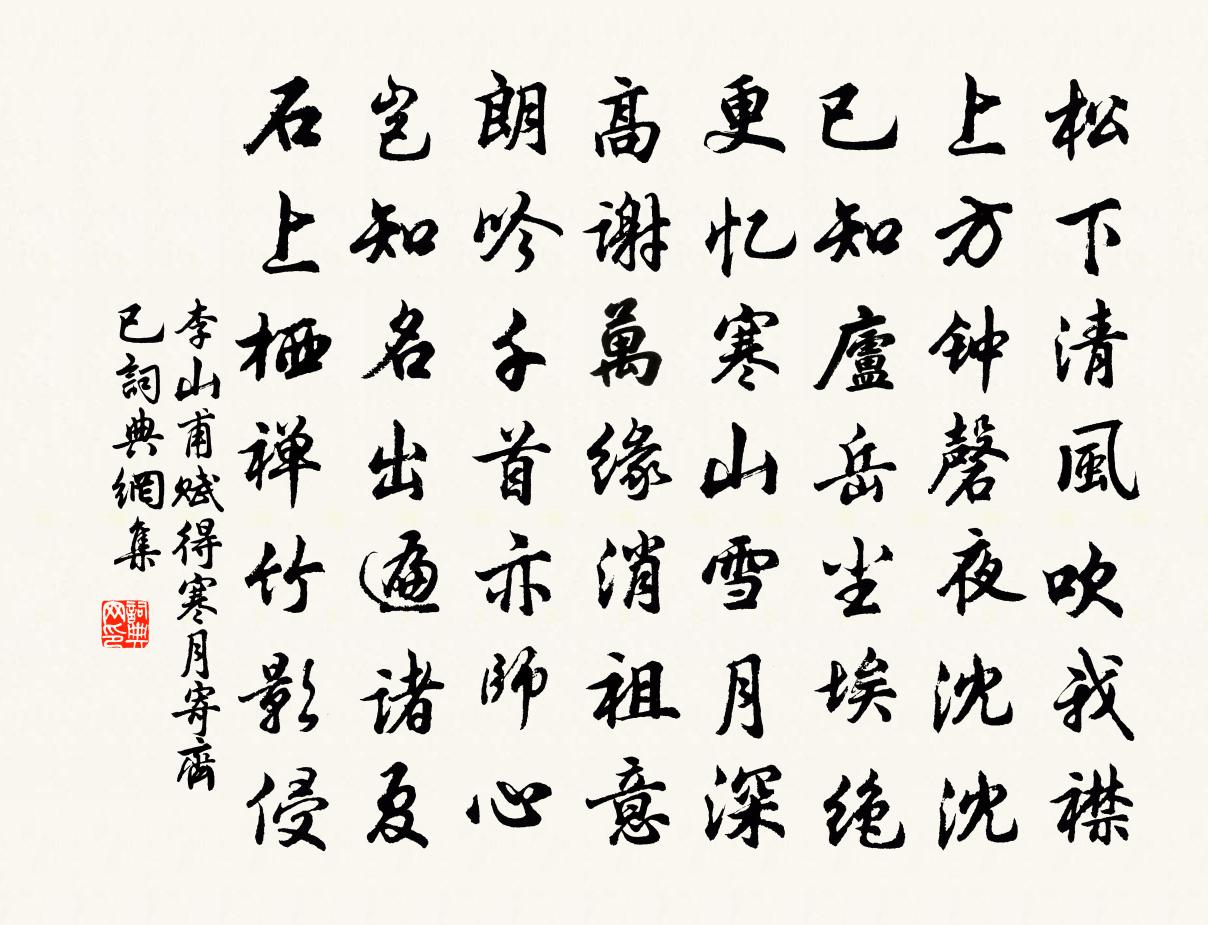 松下清風吹我襟
上方钟磬夜沈沈
已知廬岳尘埃绝
更忆寒山雪月深
高谢萬缘消祖意
朗吟千首亦师心
岂知名出遍诸夏
石上栖禅竹影侵
李山甫赋得寒月寄齊
已詞典網集
詞典网印